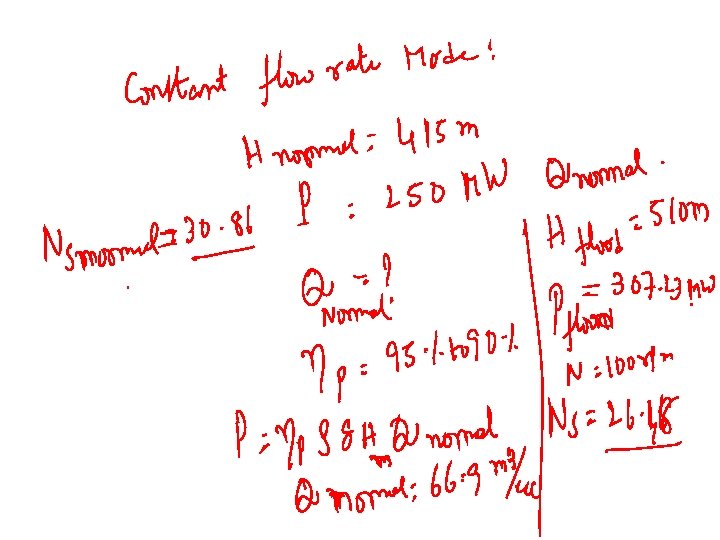 Constant flow rate Mode:
H normal = 415 m
P = 250 MW
Ns normal = 30.86
Q Normal = ?
ηp = 95% to 90%
P = ηp ρ g H m Q normal
Q normal = 66.9 m³/sec
Q normal.
H flood = 510m
P flood = 307.23 MW
N = 100 rpm
Ns = 26.18